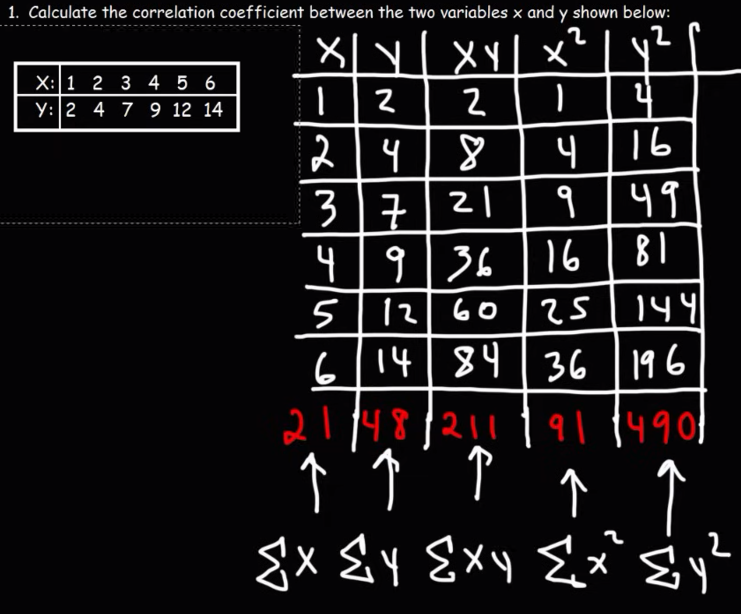 1. Calculate the correlation coefficient between the two variables x and y shown below:
X: 1 2 3 4 5 6
Y: 2 4 7 9 12 14
X Y XY X² Y²
1 2 2 1 4
2 4 8 4 16
3 7 21 9 49
4 9 36 16 81
5 12 60 25 144
6 14 84 36 196
21 48 211 91 490
ΣX ΣY ΣXY ΣX² ΣY²